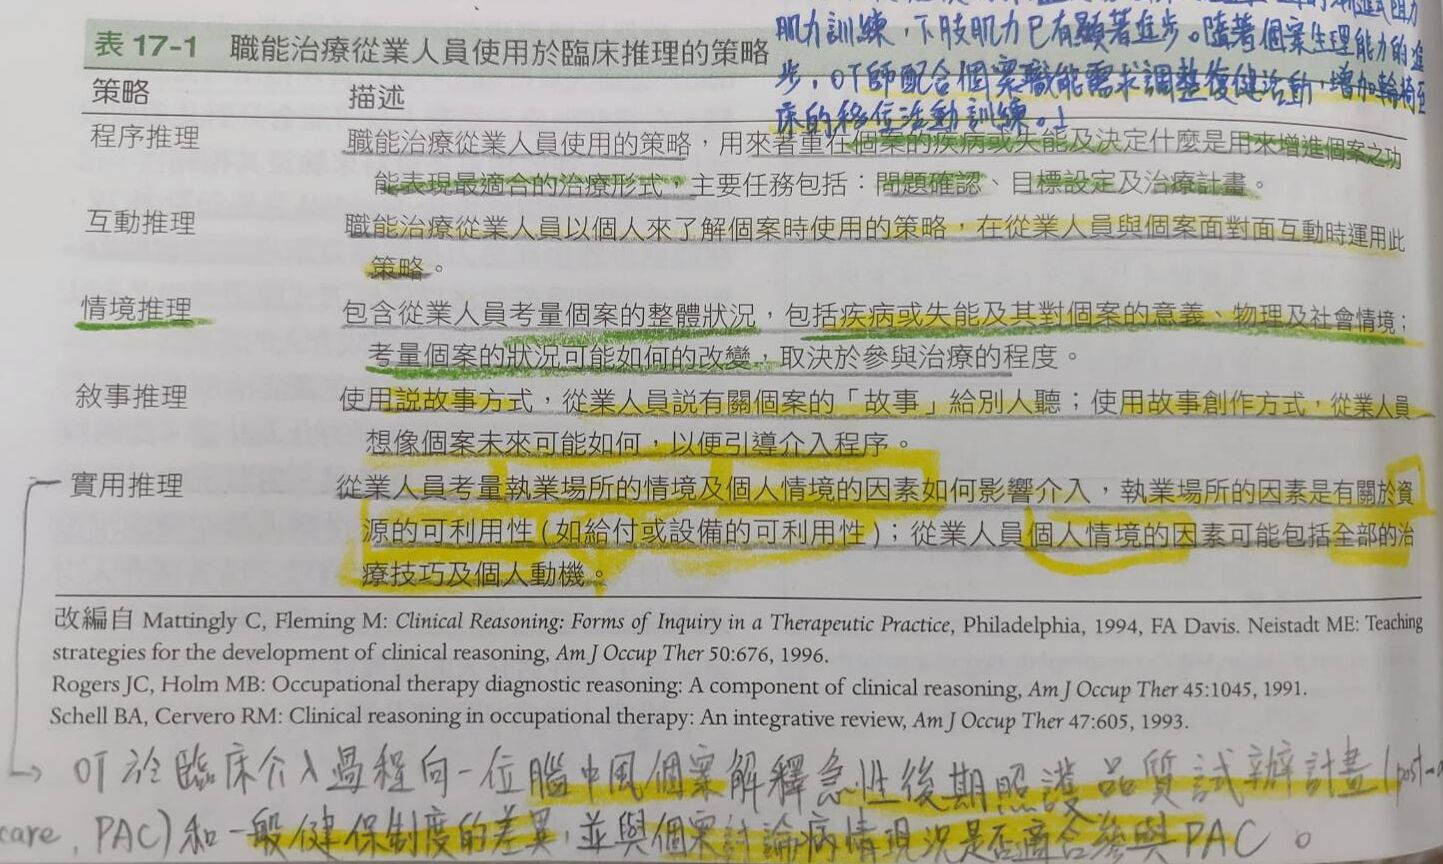 肌力訓練，下肢肌力已有顯著進步。隨著個案生理能力的進
表 17-1 職能治療從業人員使用於臨床推理的策略
步，OT師配合個案職能需求調整復健活動，增加輪椅至
床的移位活動訓練。」
策略 描述
程序推理 職能治療從業人員使用的策略，用來著重在個案的疾病或失能及決定什麼是用來增進個案之功
能表現最適合的治療形式，主要任務包括：問題確認、目標設定及治療計畫。
互動推理 職能治療從業人員以個人來了解個案時使用的策略，在從業人員與個案面對面互動時運用此
策略。
情境推理 包含從業人員考量個案的整體狀況，包括疾病或失能及其對個案的意義、物理及社會情境；
考量個案的狀況可能如何的改變，取決於參與治療的程度。
敘事推理 使用說故事方式，從業人員說有關個案的「故事」給別人聽；使用故事創作方式，從業人員
想像個案未來可能如何，以便引導介入程序。
實用推理 從業人員考量執業場所的情境及個人情境的因素如何影響介入，執業場所的因素是有關於資
源的可利用性（如給付或設備的可利用性）；從業人員個人情境的因素可能包括全部的治
療技巧及個人動機。
改編自 Mattingly C, Fleming M: Clinical Reasoning: Forms of Inquiry in a Therapeutic Practice, Philadelphia, 1994, FA Davis. Neistadt ME: Teaching
strategies for the development of clinical reasoning, Am J Occup Ther 50:676, 1996.
Rogers JC, Holm MB: Occupational therapy diagnostic reasoning: A component of clinical reasoning, Am J Occup Ther 45:1045, 1991.
Schell BA, Cervero RM: Clinical reasoning in occupational therapy: An integrative review, Am J Occup Ther 47:605, 1993.
OT於臨床介入過程向一位腦中風個案解釋急性後期照護品質試辦計畫(post-a
care, PAC)和一般健保制度的差異，並與個案討論病情現況是否適合參與PAC。